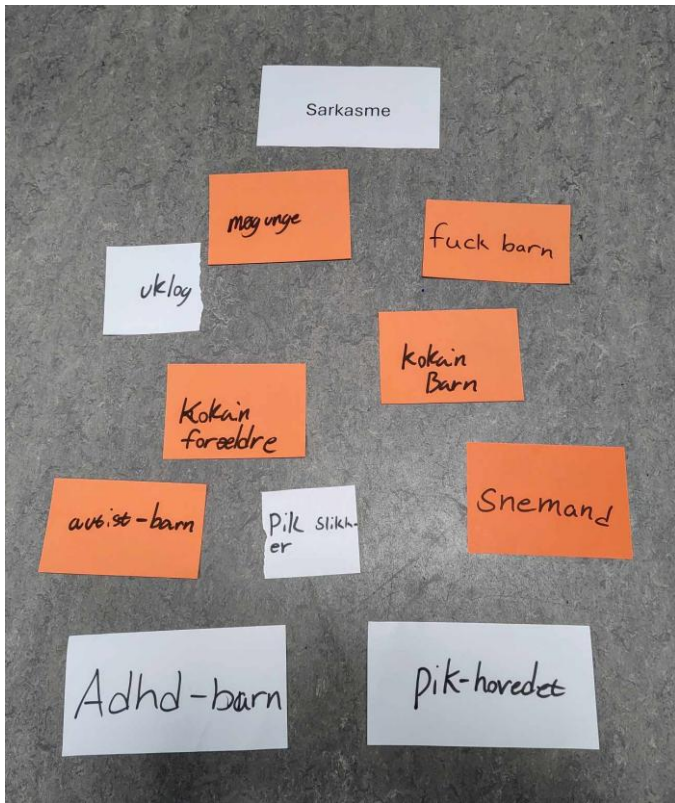 Sarkasme
møg unge
fuck barn
uklog
kokain
Barn
Kokain
forældre
autist-barn
Pik slikh-
er
Snemand
Adhd-barn
Pik-hovedet